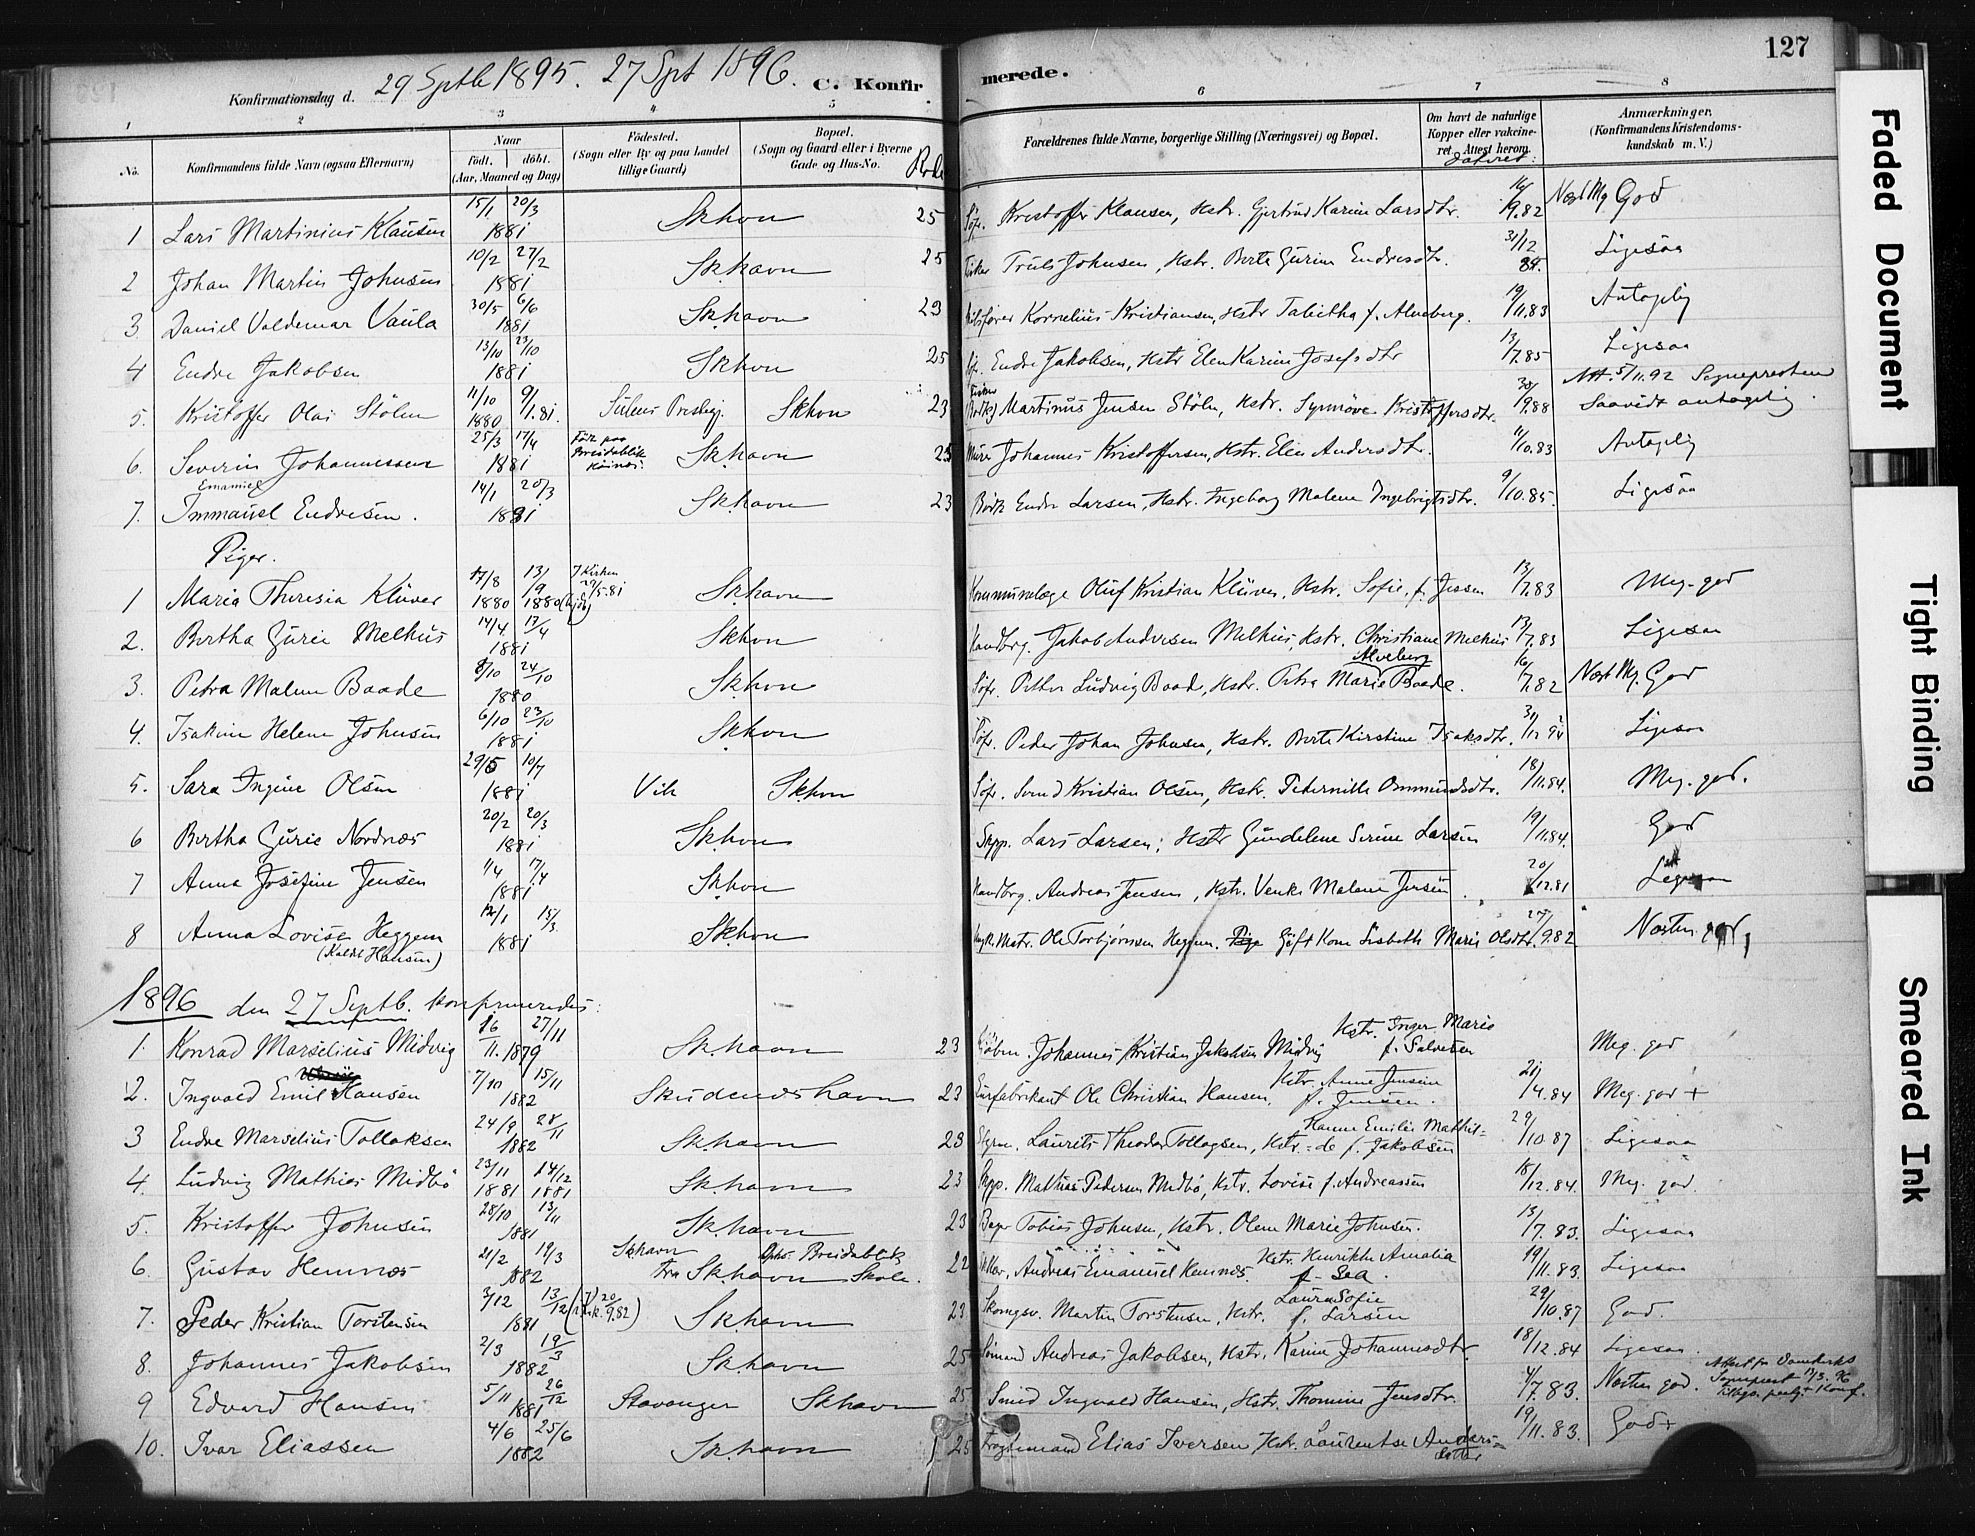 127
Konfirmationsdag d. 29 Septb 1895. 27 Spt 1896. C. Konfir merede.
1 2 3 4 5 6 7 8
No. Konfirmandens fulde Navn (ogsaa Efternavn) Naar født. døbt. (Aar, Maaned og Dag) Fødested. (Sogn eller By og paa Landet tillige Gaard) Bopæl. (Sogn og Gaard eller i Byerne Gade og Hus-No. Forældrenes fulde Navne, borgerlige Stilling (Næringsvei) og Bopæl. Om havt de naturlige Kopper eller vakcineret. Attest herom dateret: Anmærkninger. (Konfirmandens Kristendomskundskab m. V.)
1 Lars Martinius Klausen 15/1 20/3 1881 Skhvn 25 Kristoffer Klausen, Hstr. Gjertrud Karine Larsdtr. 9.82 Næst Mg God
2 Johan Martin Johnsen 10/2 27/2 1881 Sk.havn 25 Fisker Truls Johnsen, Hstr. Berta Gurine Endresdtr. 31/12 84. Ligesaa
3 Daniel Valdemar Vaula 30/5 6/6 1881 Sk.havn 23 Kornelius Kristiansen, Hstr Tabitha f. Alveberg. 19/11.83 Antagelig
4 Endre Jakobsen 13/10 23/10 1881 Skhvn 25 Endre Jakobsen, Hstr Elen Karine Josefsdtr 13/7.85 Ligesaa
5. Kristoffer Olai Stølen 11/10 1880 9/1.81. Sulens Prestegj. Skhvn 23 Martinus Jensen Stølen, Hstr. Synnøve Kristoffersdtr. 30/9.88 Att. 5/11.92 Sognepresten Saavidt antagelig.
6. Severin Johannessen 25/3 17/4 1881 Født paa Breidablik Sk.havn 25 Murer Johannes Kristoffersen, Hstr. Elen Andersdtr. 11/10.83 Antagelig
7. Immanuel Endresen. Emanuel 14/1 20/3 1881 Sk.havn 23 Endre Larsen, Hstr. Ingeborg Malene Ingebrigtsdtr. 9/10.85. Ligesaa
Piger.
1 Maria Theresia Klüver 17/8 1880 13/9 1880 (hjdb) I Kirken 29/5.81 Sk.havn Kommunelæge Oluf Kristian Klüver, Hstr. Sofie f. Jessen 13/7.83 Meg. god
2. Bertha Gurie Melhus 14/4. 17/4 1881 Skhvn Handbrg. Jakob Andersen Melhus, Hstr. Christiane Melhus 13/7.83 Ligesaa
3. Petra Malene Baade 8/10 24/10 1880 Sk.hvn Petter Ludvig Baade, Hstr. Petra Marie Alveberg Baade. 16/7.82 Næst Mg. God
4. Isakine Helene Johnsen 6/10 23/10 1881 Sk.hvn Peder Johan Johnsen, Hstr. Berte Kirstine Isaksdtr. 31/12 94 Ligesaa
5. Sara Ingine Olsen 29/5 10/7 1881 Vik Skhvn Søfr. Svend Kristian Olsen, Hstr. Peternille Ommundsdtr. 18/11.84. Meg. god.
6 Bertha Gurie Nordnæs 20/2 20/3 1881 Sk.hvn Skpp. Lars Larsen; Hstr Gundelene Serine Larsen 19/11.84. God
7 Anna Josefine Jensen 1/4 17/4 1881 Sk.hvn Handbrg. Andreas Jensen, Hstr. Venke Malene Jensen. 20/12.81 Ligesaa
8 Anna Lovise Heggem (Kaldt Hansen) 12/1 13/3 1881 Skhvn Ole Torbjørnsen Heggem. Pige Gift Kone Lisbeth Marie Olsdtr. 27/9.82 Næsten god
1896 den 27 Septb. konfirmeredes:
1. Konrad Marselius Midvig 16/11. 27/11 1879 Sk.havn 23 Johannes Kristian Jakobsen Midvig Hstr. Inger Marie f. Salvesen Meg. god
2. Ingvald Emil Hansen 7/10 15/11 1882 Skudeneshavn 23 Ole Christian Hansen, Hstr. Anne Jensine f. Jensen. 21/4.84 Meg. god +
3 Endre Marselius Tollaksen 24/9 28/11 1882 Sk.havn 23 Styrm. Laurits Theodor Tollagsen, Hstr. Hanne Emilie Mathil=de f. Jakobsen 29/10.87 Ligesaa
4. Ludvig Mathias Midbø 23/11 1881 14/12 1881 Sk.havn 23 Skpp. Mathias Pedersen Midbø, Hstr. Lovise f. Andreassen 18/12.84. Meg. god.
5. Kristoffer Johnsen 28/10 13/11 1881 Sk.havn 23 Bager Tobias Johnsen, Hstr. Olene Marie Johnsen. 13/7.83. Ligesaa
6. Gustav Hemnæs 21/2 19/3 1882 Skhavn fra Sk.havn Ophs. Breidablik Skole. 22 Andreas Emanuel Hemnæs. Hstr. Henrikke Amalia f. Sea. 19/11.83. Ligesaa
7. Peder Kristian Torstensen 3/12 13/12 1881 (i Kirk 20/9.82) Sk.havn 23 Skomgsv. Martin Torstensen, Hstr. Laura Sofie f. Larsen 29/10.87 God.
8. Johannes Jakobsen 2/3 19/3 1882 Sk.havn 25 Sømand Andreas Jakobsen, Hstr. Karine Johannesdtr. 18/12.84 Ligesaa.
9 Edvard Hansen 5/11 26/12 1881 Stavanger Skhavn 25 Smed Ingvald Hansen, Hstr. Thomine Jensdtr. 4/7.83. Næsten god. Attest fra Domkirkes Sogneprest 13/3.96
10. Ivar Eliassen 4/6 25/6 1882 Sk.havn 25 Elias Iversen Hstr. Laurentse Anders=datter 19/11.83. God +
Faded Document
Tight Binding
Smeared Ink